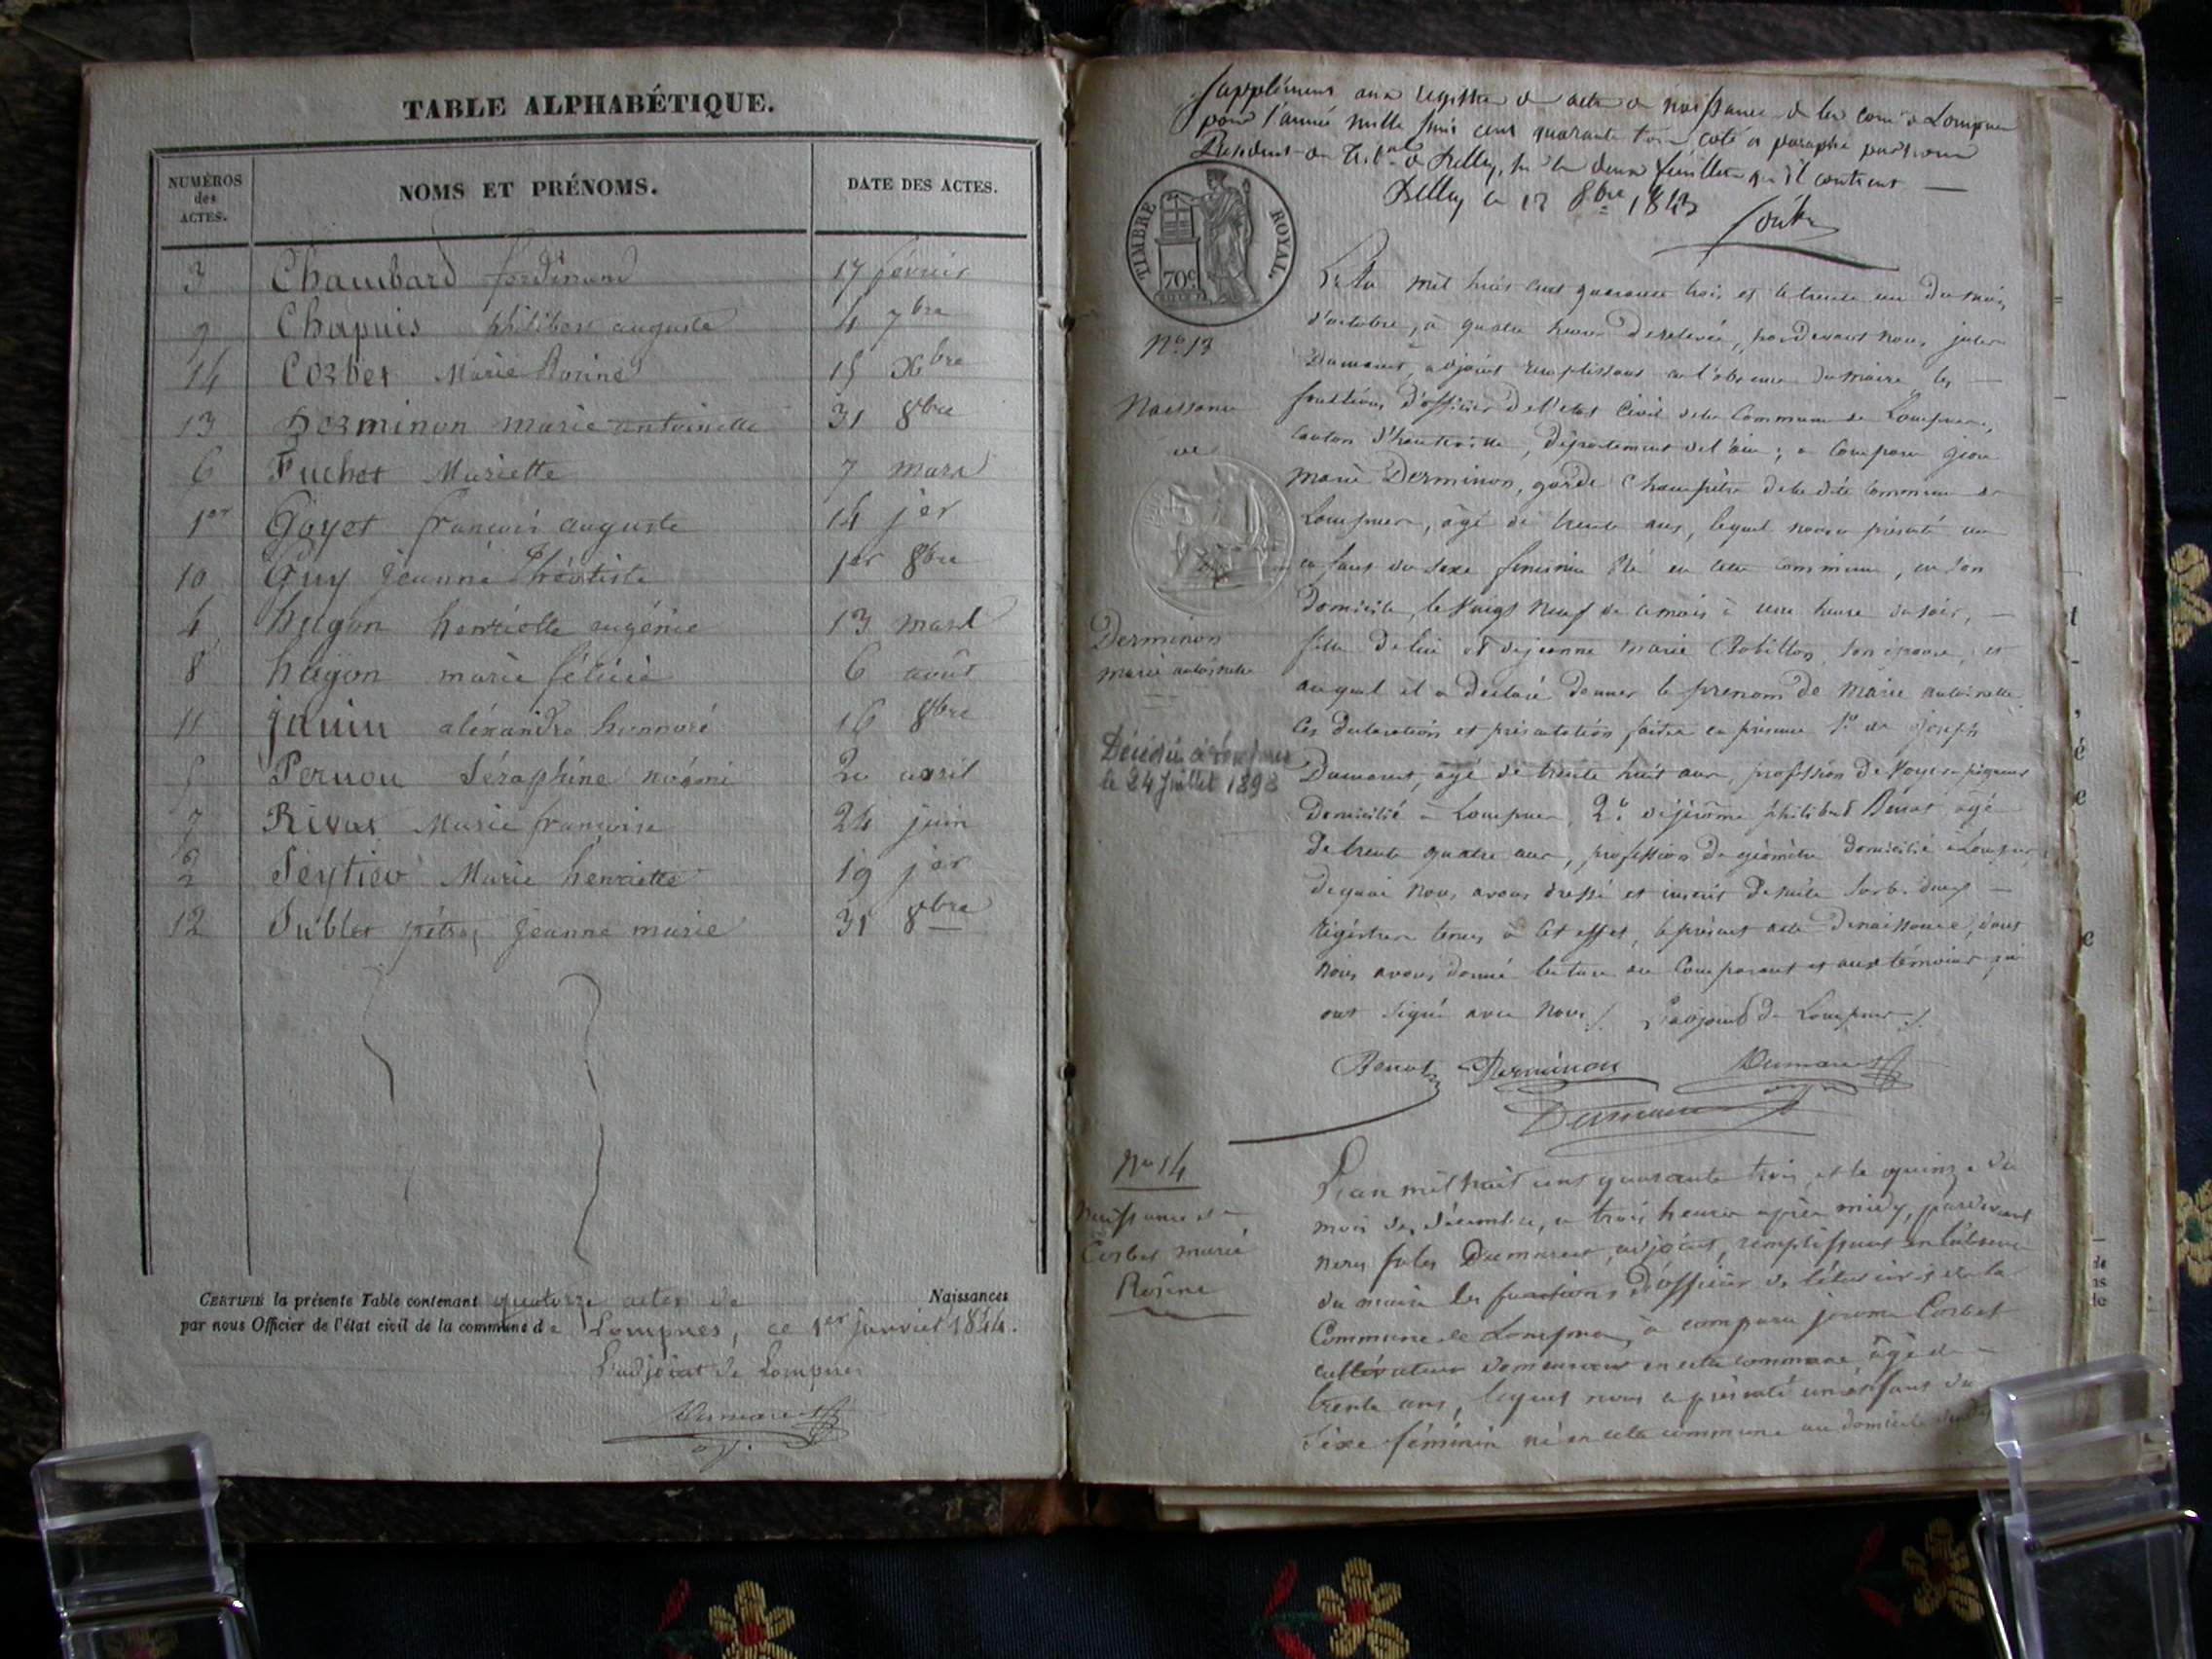 TABLE ALPHABÉTIQUE.
NUMÉROS des ACTES. NOMS ET PRÉNOMS. DATE DES ACTES.
3 Chambard ferdinand 17 février
9 Chapuis philibert auguste 4 7bre
14 Corbet Marie Rosine 15 Xbre
13 Derminon marie antoinette 31 8bre
6 Fuchet Mariette 7 mars
1er Goyet françois auguste 14 jer
10 Guy jeanne Théotiste 1er 8bre
4 hugon henriette eugénie 13 mars
8 hugon marie félicie 6 août
11 janin aléxandre honnoré 16 8bre
5 Pernou Séraphine noémi 20 avril
7 Rivat Marie françoise 24 juin
2 Seytier Marie henriette 19 jer
12 Sublet jeanne marie 31 8bre
CERTIFIÉ la présente Table contenant quatorze actes de Naissances
par nous Officier de l'état civil de la commune de Lompnes, ce 1er janvier 1844.
L'adjoint de Lompnes
Dumarest
Supplément aux registres de actes de naissance de la com de Lompnes
pour l'année mille huit cent quarante trois coté et paraphé par nous
Président du Tribal de Belley, sur les deux feuilles qu'il contient
Belley le 17 8bre 1843
TIMBRE ROYAL.
70c
No 13
Naissance
de
Derminon
marie antoinette
Décédée à Lompnes
le 24 Juillet 1893
L'an mil huit cent quarante trois et le trente un du mois
d'octobre, à quatre heures de relevée, pardevant nous jules
Dumarest, adjoint remplissant en l'absence du maire les
fonctions d'officier de l'etat civil de la Commune de Lompnes,
canton d'hauteville, département de l'ain; a comparu
marie Derminon, garde Champêtre de la dite commune de
Lompnes, âgé de trente ans, lequel nous a présenté un
enfant du sexe féminin né en cette commune, en son
domicile, le vingt neuf de ce mois à une heure du soir,
fille de lui et de jeanne marie Robillon, son épouse, et
auquel il a déclaré donner le prenom de marie antoinette.
Ces déclaration et présentation faites en présence 1° de joseph
Dumarest, âgé de trente huit ans, profession de Voyer piqueur
domicilié à Lompnes, 2° de jérôme philibert Benat, âgé
de trente quatre ans, profession de géomètre domicilié à Lompnes,
de quoi nous avons dressé et inscrit de suite sur les deux
régistres tenus à cet effet, le présent acte de naissance, dont
nous avons donné lecture au Comparant et aux témoins qui
ont signé avec nous /. L'adjoint de Lompnes /.
Benat Derminon Dumarest
Dumarest
No 14
Naissance de
Corbet marie
Rosine
L'an mil huit cent quarante trois et le quinze du
mois de décembre, à trois heures après midy, pardevant
nous jules Dumarest, adjoint, remplissant en l'absence
du maire les fonctions d'officier de l'état civil de la
Commune de Lompnes, a comparu jerome Corbet
cultivateur demeurant en cette commune âgé de
trente ans, lequel nous a présenté un enfant du
sexe féminin né en cette commune au domicile